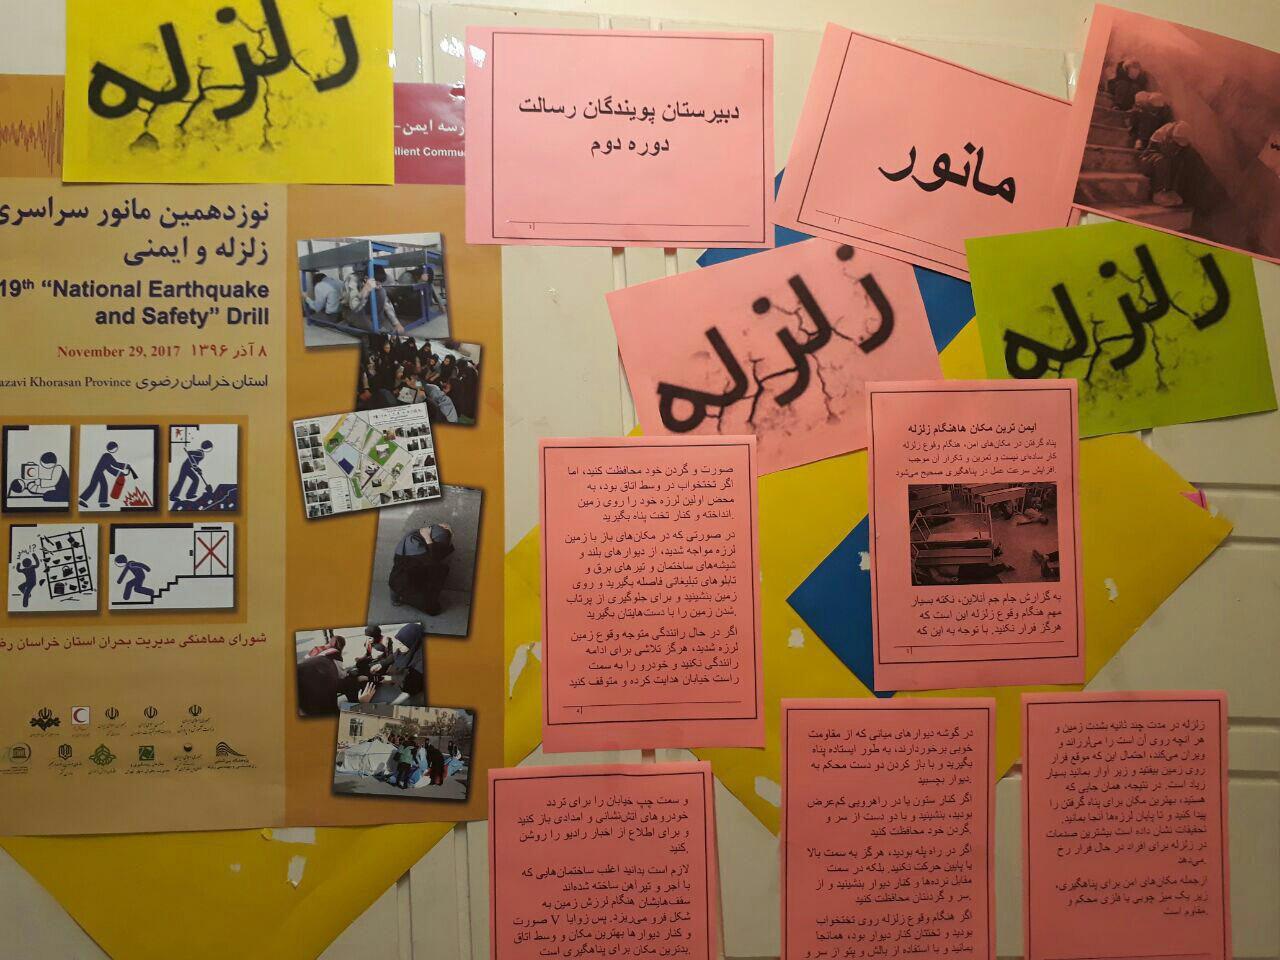 زلزله
رسه ایمن-
ilient Commu
نوزدهمین مانور سراسری
زلزله و ایمنی
19th “National Earthquake
and Safety” Drill
November 29, 2017 ۸ آذر ۱۳۹۶
azavi Khorasan Province استان خراسان رضوی
شورای هماهنگی مدیریت بحران استان خراسان رض
دبیرستان پویندگان رسالت
دوره دوم
مانور
زلزله
زلزله
ایمن ترین مکان هاهنگام زلزله
پناه گرفتن در مکان‌های امن، هنگام وقوع زلزله
کار ساده‌ای نیست و تمرین و تکرار آن موجب
افزایش سرعت عمل در پناهگیری صحیح می‌شود.
به گزارش جام جم آنلاین، نکته بسیار
مهم هنگام وقوع زلزله این است که
هرگز فرار نکنید. با توجه به این که
زلزله در مدت چند ثانیه بشدت زمین و
هر آنچه روی آن است را می‌لرزاند و
ویران می‌کند، احتمال این که موقع فرار
روی زمین بیفتید و زیر آوار بمانید بسیار
زیاد است. در نتیجه، همان جایی که
هستید، بهترین مکان برای پناه گرفتن را
پیدا کنید و تا پایان لرزه‌ها آنجا بمانید.
تحقیقات نشان داده است بیشترین صدمات
در زلزله برای افراد در حال فرار رخ
می‌دهد.
ازجمله مکان‌های امن برای پناهگیری،
زیر یک میز چوبی یا فلزی محکم و
مقاوم است.
در گوشه دیوارهای میانی که از مقاومت
خوبی برخوردارند، به طور ایستاده پناه
بگیرید و با باز کردن دو دست محکم به
دیوار بچسبید.
اگر کنار ستون یا در راهرویی کم‌عرض
بودید، بنشینید و با دو دست از سر و
گردن خود محافظت کنید.
اگر در راه پله بودید، هرگز به سمت بالا
یا پایین حرکت نکنید. بلکه در سمت
مقابل نرده‌ها و کنار دیوار بنشینید و از
سر و گردنتان محافظت کنید.
اگر هنگام وقوع زلزله روی تختخواب
بودید و تختتان کنار دیوار بود، همانجا
بمانید و با استفاده از بالش و پتو از سر و
صورت و گردن خود محافظت کنید، اما
اگر تختخواب در وسط اتاق بود، به
محض اولین لرزه خود را روی زمین
انداخته و کنار تخت پناه بگیرید.
در صورتی که در مکان‌های باز با زمین
لرزه مواجه شدید، از دیوارهای بلند و
شیشه‌های ساختمان و تیرهای برق و
تابلوهای تبلیغاتی فاصله بگیرید و روی
زمین بنشینید و برای جلوگیری از پرتاب
شدن زمین را با دست‌هایتان بگیرید.
اگر در حال رانندگی متوجه وقوع زمین
لرزه شدید، هرگز تلاشی برای ادامه
رانندگی نکنید و خودرو را به سمت
راست خیابان هدایت کرده و متوقف کنید
و سمت چپ خیابان را برای تردد
خودروهای آتش‌نشانی و امدادی باز کنید
و برای اطلاع از اخبار رادیو را روشن
کنید.
لازم است بدانید اغلب ساختمان‌هایی که
با آجر و تیرآهن ساخته شده‌اند
سقف‌هایشان هنگام لرزش زمین به
شکل فرو می‌ریزد. پس زوایا V صورت
و کنار دیوارها بهترین مکان و وسط اتاق
بدترین مکان برای پناهگیری است